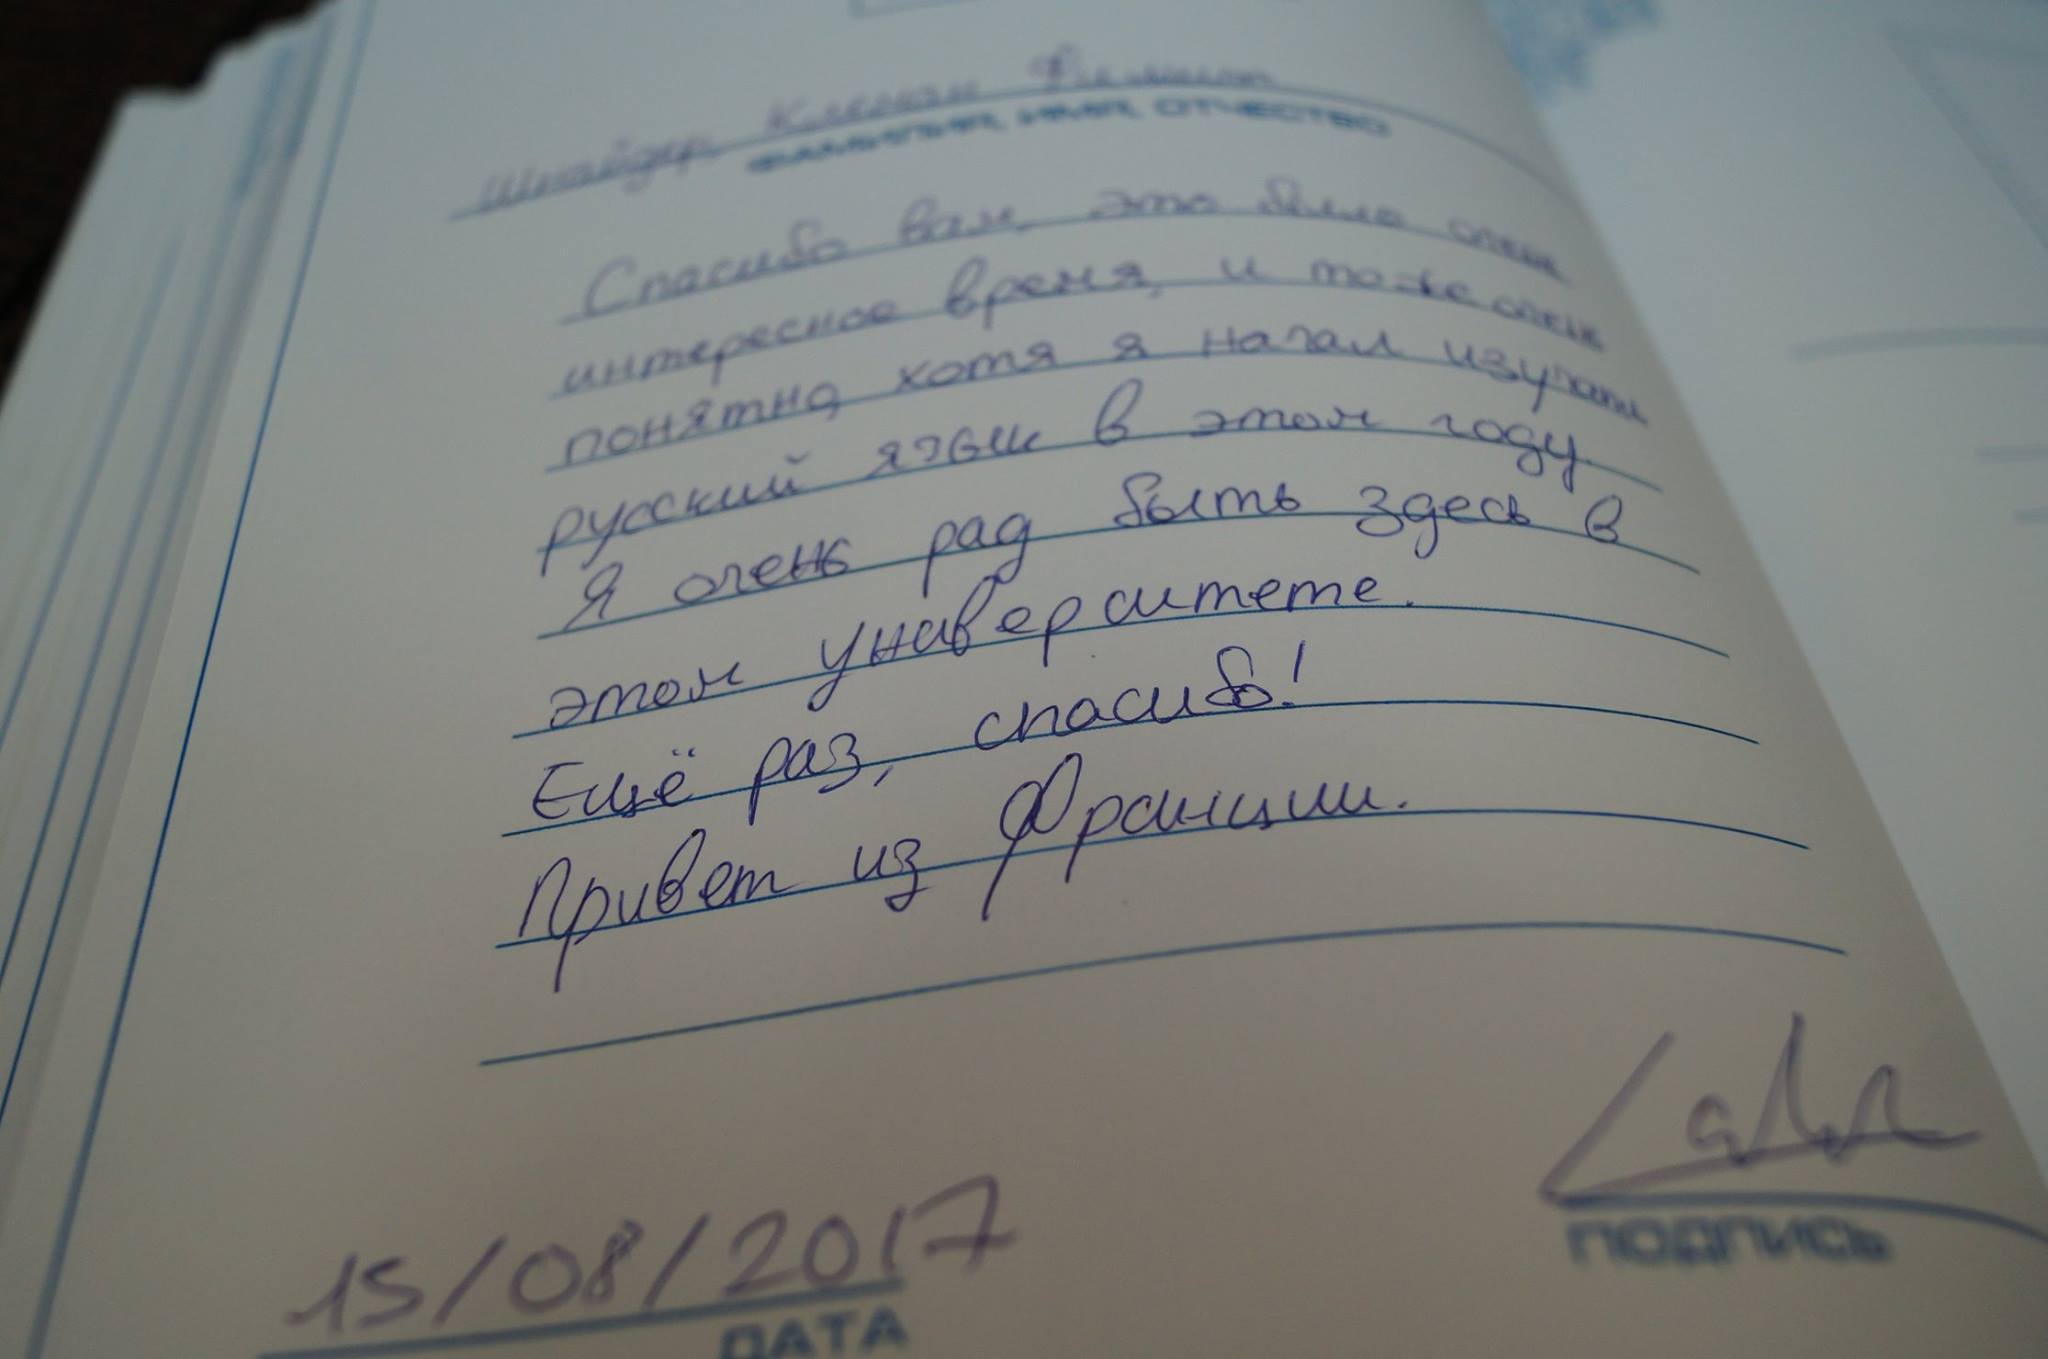 Шнайдер Клеман Филипп
ФАМИЛИЯ, ИМЯ, ОТЧЕСТВО
Спасибо вам, это было очень
интересное время, и тоже очень
понятно, хотя я начал изучать
русский язык в этом году.
Я очень рад быть здесь в
этом университете.
Ещё раз, спасибо!
Привет из Франции.
15/08/2017
ДАТА
ПОДПИСЬ